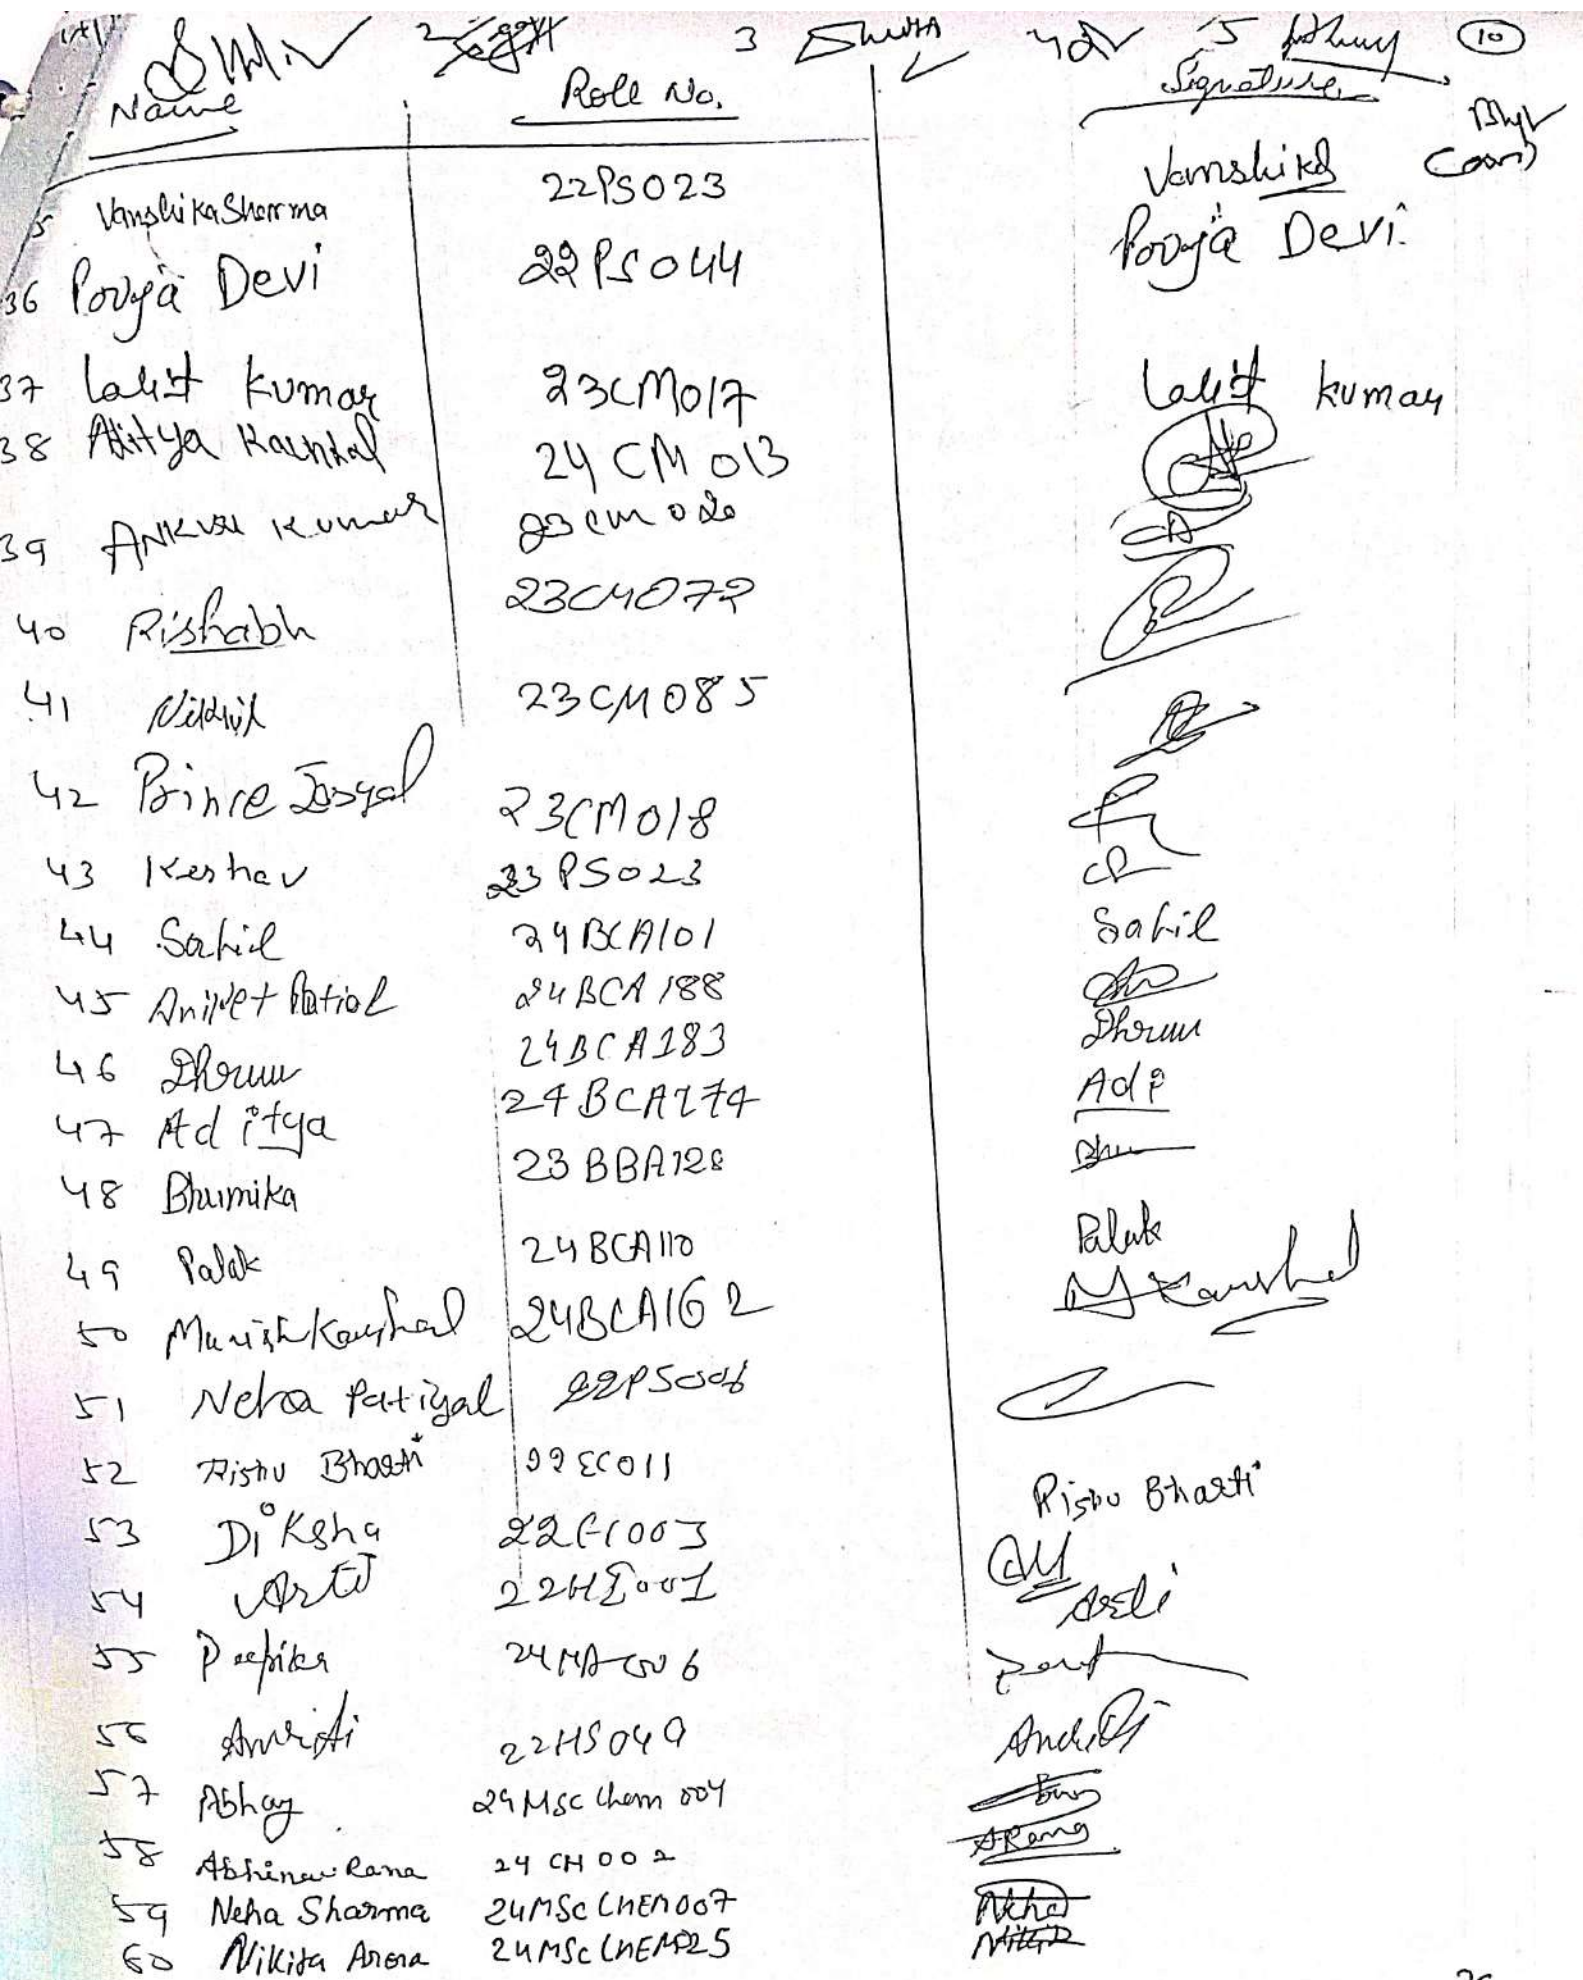 3 5 10
Name Roll No. Signature
Vanshika Sharma 22PS023 Vanshika
36 Pooja Devi 22PS044 Pooja Devi
37 Lalit Kumar 23CM017 Lalit Kumar
38 Aditya Kaundal 24CM013
39 Ankush Kumar 23CM020
40 Rishabh 23CM072
41 Nikhil 23CM085
42 Prince Jasyal 23CM018
43 Keshav 23PS023
44 Sahil 24BCA101 Sahil
45 Aniket Patial 24BCA188
46 Dhruv 24BCA183 Dhruv
47 Aditya 24BCA174 Adi
48 Bhumika 23BBA128 Bhu
49 Palak 24BCA110 Palak
50 Munish Kaushal 24BCA162 M Kaushal
51 Neha Patiyal 22PS006
52 Rishu Bharti 22EC011 Rishu Bharti
53 Diksha 22EC003
54 Arti 22HE001 Arti
55 Deepika 24MA006
56 22HS049
57 Abhay 24MSc Chem 004
58 Abhinav Rana 24CH002 ARana
59 Neha Sharma 24MSc CHEM007 Neha
60 Nikita Arora 24MSc CHEM025